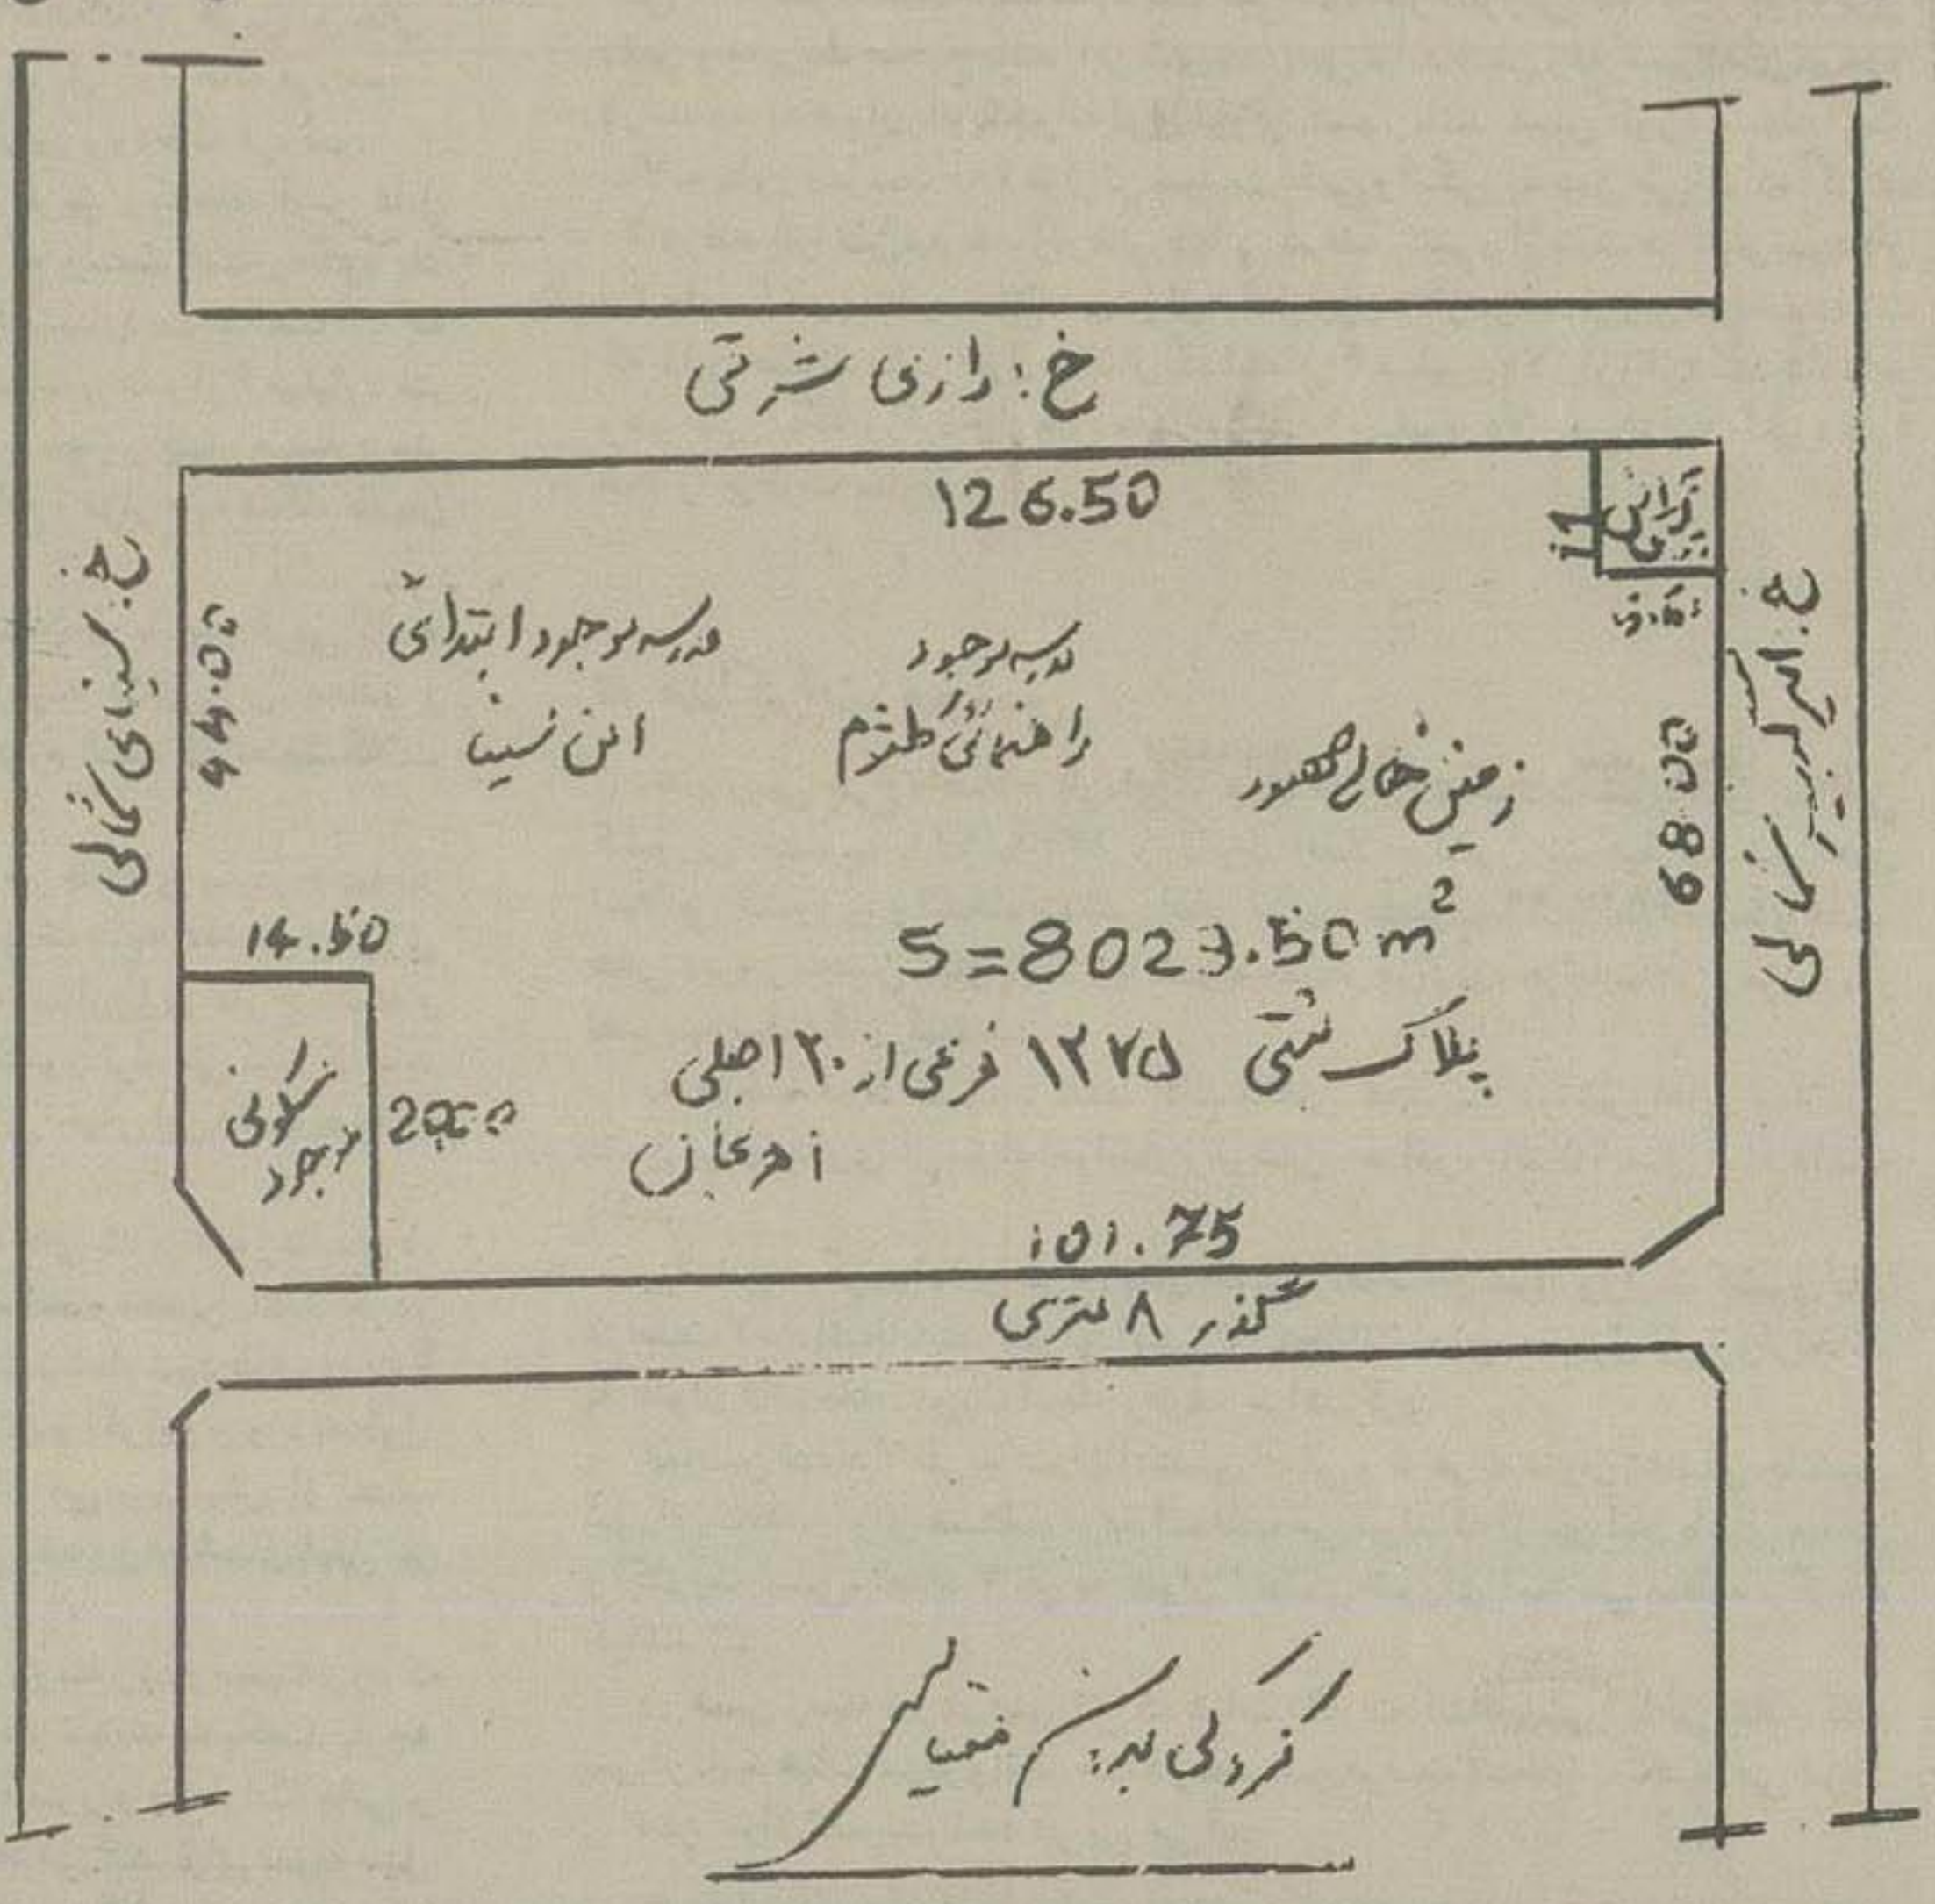 خ: رازی شرقی
126.50
خ: سینای شمالی
44.00
مدرسه موجود ابتدائی
ابن سینا
مدرسه موجود
راهنمائی
زمین خالی محصور
68.00
خ: امیرکبیر شمالی
S=8023.50 m²
14.50
پلاک ثبتی ۱۲۷۵ فرعی از ۲۰ اصلی
مسکونی
موجود
20.00
101.75
گذر ۸ متری